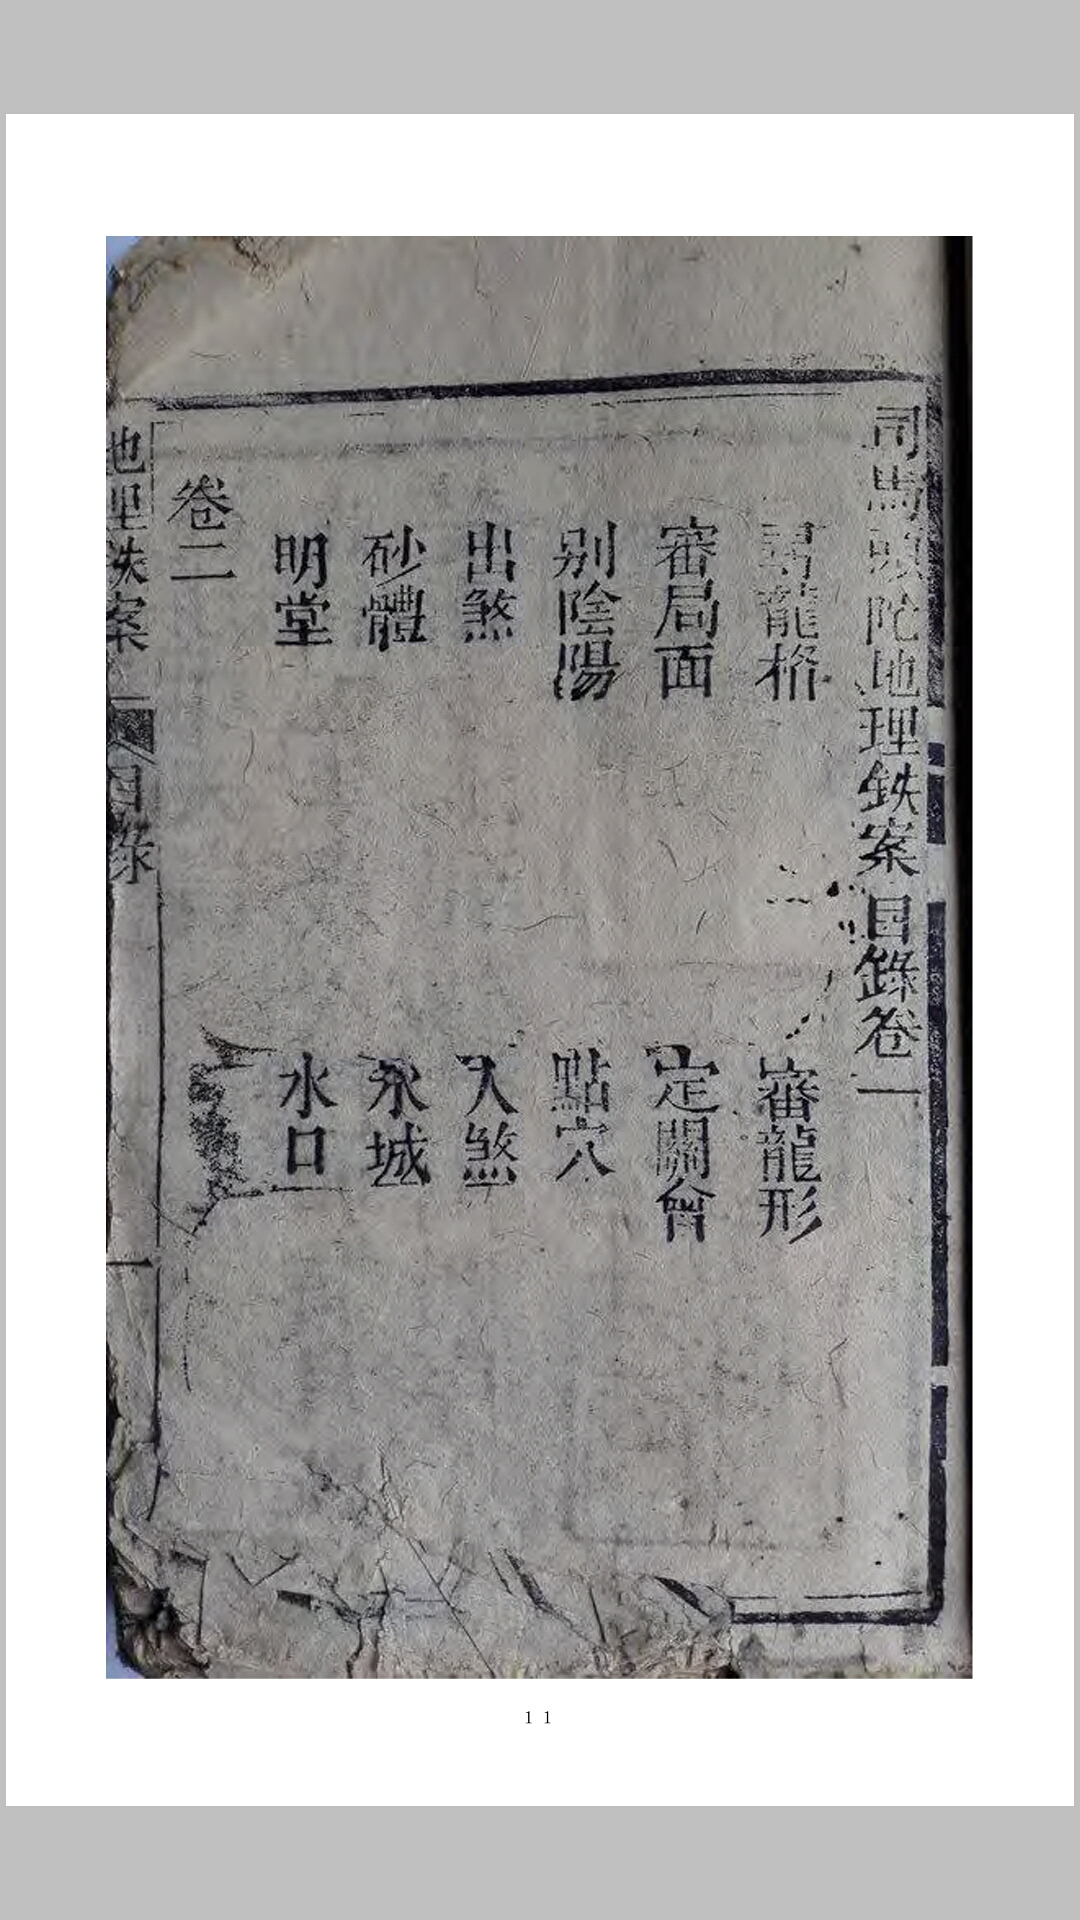 司馬頭陀地理鉄案目錄卷一
尋龍格
審龍形
審局面
定關會
別陰陽
點穴
出煞
入煞
砂體
水城
明堂
水口
卷二
地理鉄案
目錄
一
11